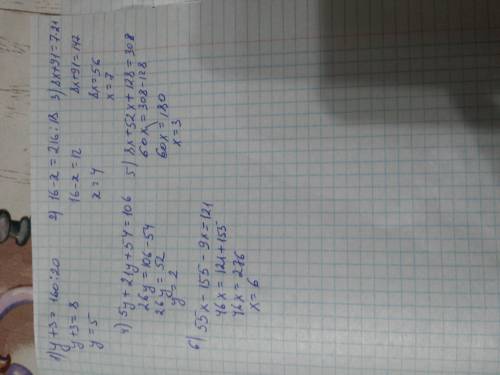 1) y+3=160:20
y+3=8
y=5
2) 16-x=216:18
16-x=12
x=4
3) 8x+91=7·21
8x+91=147
8x=56
x=7
4) 5y+21y+54=106
26y=106-54
26y=52
y=2
5) 8x+52x+128=308
60x=308-128
60x=180
x=3
6) 55x-155-9x=121
46x=121+155
46x=276
x=6